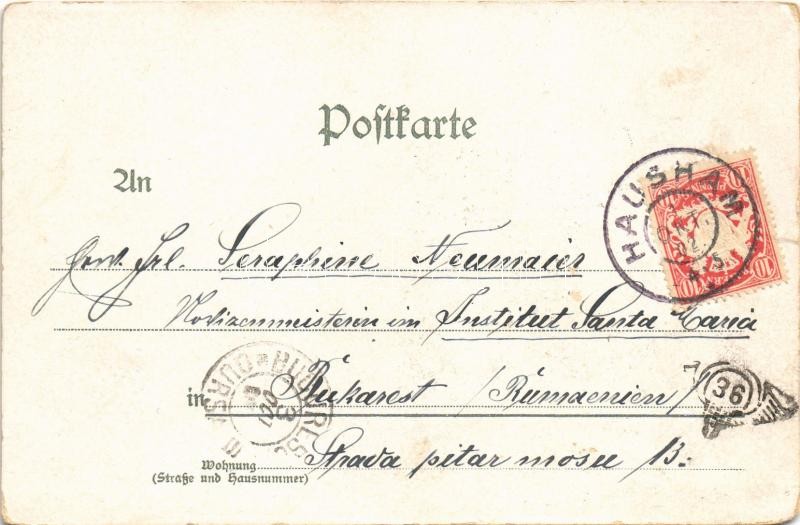 Postkarte
An
HAUSHAM
OKT.
4-5
10
Frl. Seraphine Neumaier
Novizenmeisterin im Institut Santa Maria
in Bukarest /Rumaenien/
36
Strada pitar mosu 13.
Wohnung
(Straße und Hausnummer)